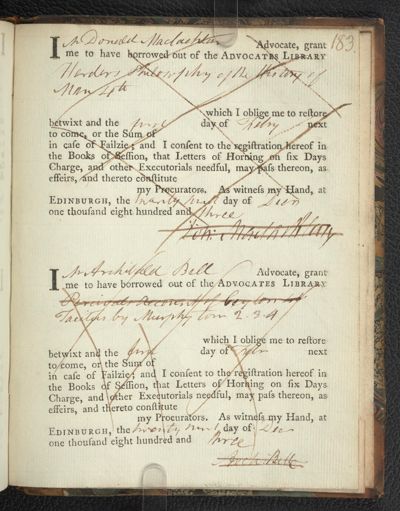 183
I Mr Donald Maclachlan Advocate, grant
me to have borrowed out of the ADVOCATES LIBRARY
Herders Philosophy of the History of
Man 4to
which I oblige me to reſtore
betwixt and the first day of Febry next
to come, or the Sum of
in caſe of Failzie; and I conſent to the regiſtration hereof in
the Books of Seſſion, that Letters of Horning on ſix Days
Charge, and other Executorials needful, may paſs thereon, as
effeirs, and thereto conſtitute
my Procurators. As witneſs my Hand, at
EDINBURGH, the twenty first day of Decr
one thouſand eight hundred and three
I Mr Archibald Bell Advocate, grant
me to have borrowed out of the ADVOCATES LIBRARY
Percivals Account of Ceylon
Tacitus by Murphy tom 2. 3. 4
which I oblige me to reſtore
betwixt and the first day of next
to come, or the Sum of
in caſe of Failzie; and I conſent to the regiſtration hereof in
the Books of Seſſion, that Letters of Horning on ſix Days
Charge, and other Executorials needful, may paſs thereon, as
effeirs, and thereto conſtitute
my Procurators. As witneſs my Hand, at
EDINBURGH, the twenty first day of Decr
one thouſand eight hundred and three
Arch Bell